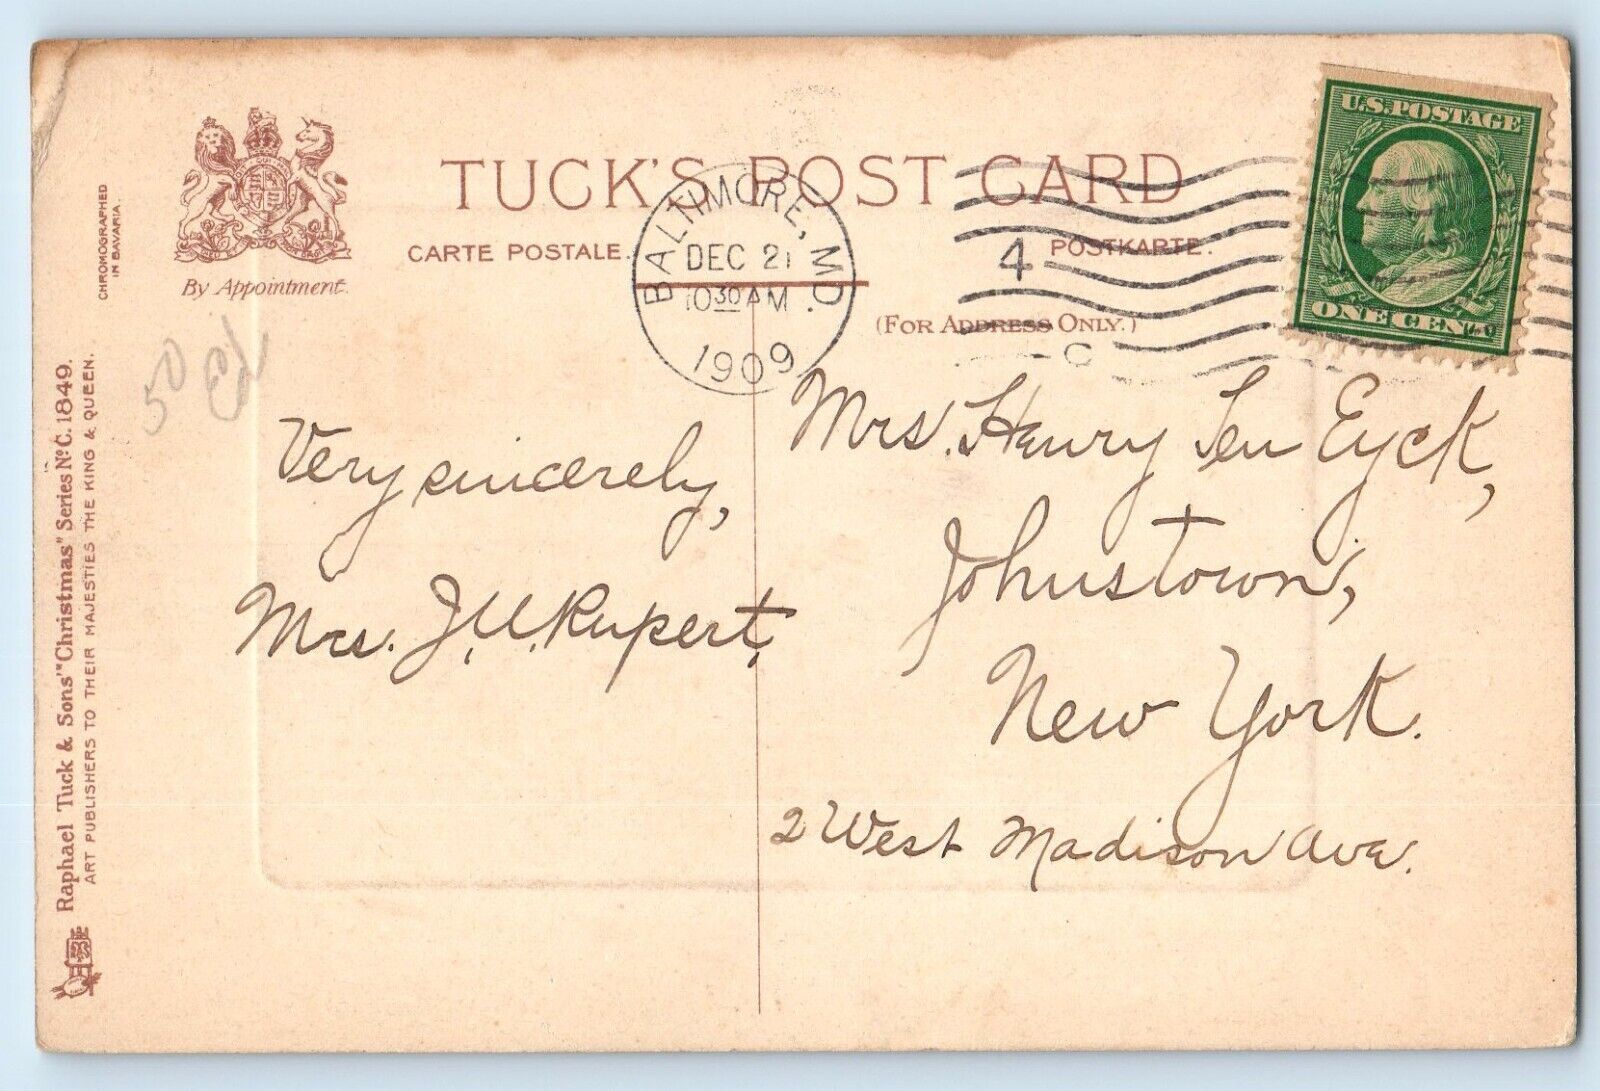 TUCK'S POST CARD
CARTE POSTALE.
POSTKARTE.
(FOR ADDRESS ONLY.)
By Appointment.
CHROMOGRAPHED
IN BAVARIA.
Raphael Tuck & Sons' "Christmas" Series No C. 1849.
ART PUBLISHERS TO THEIR MAJESTIES THE KING & QUEEN.
BALTIMORE, MD.
DEC 21
10 30 AM
1909
4
C
U.S. POSTAGE
ONE CENT
50
Very sincerely,
Mrs. J. U. Rupert.
Mrs. Henry Ten Eyck,
Johnstown,
New York.
2 West Madison Ave.